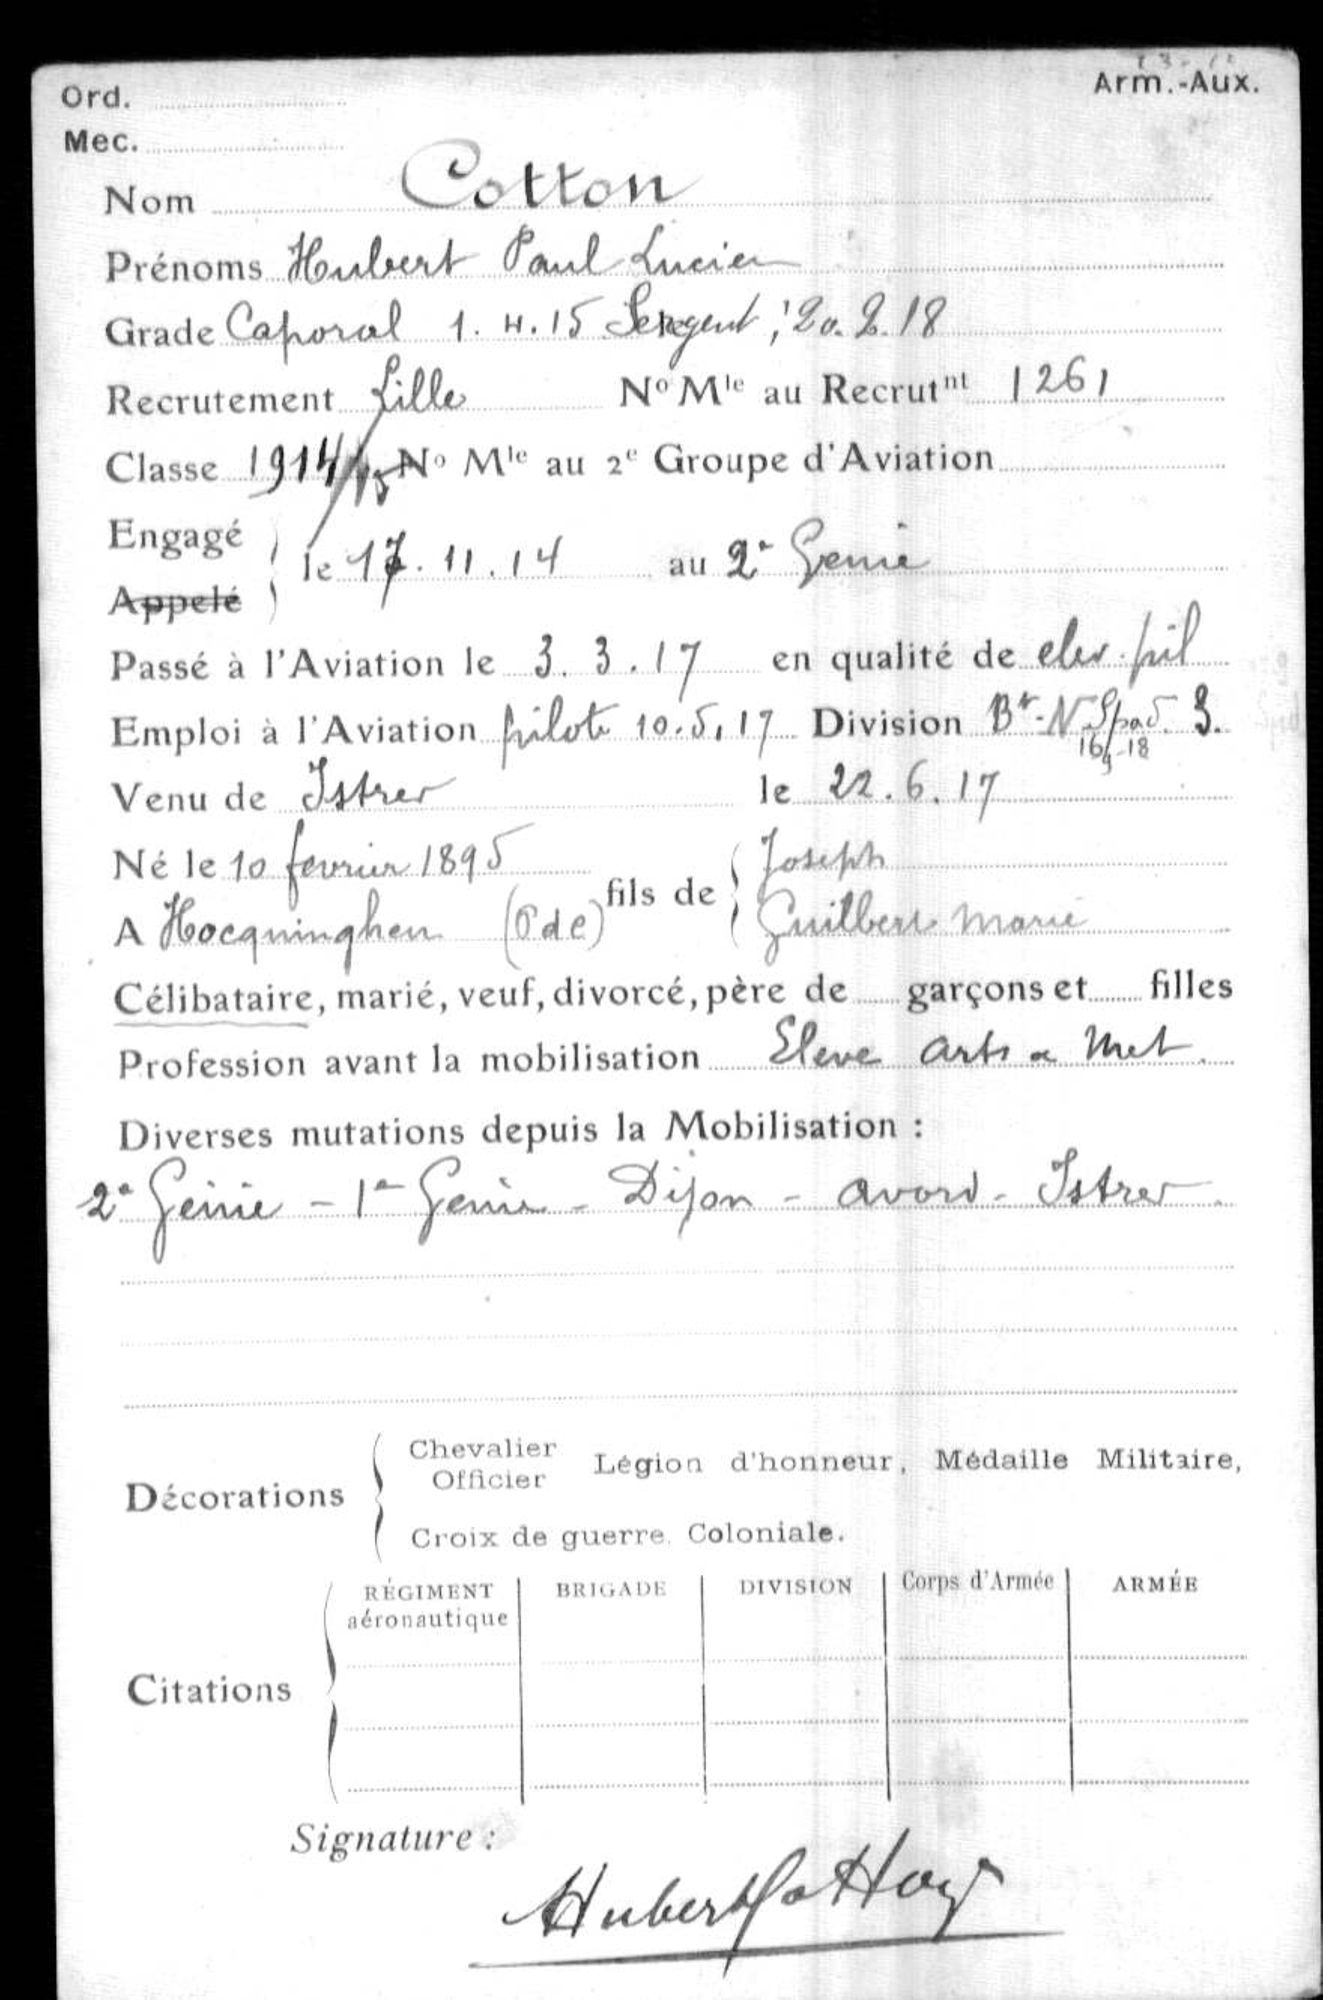 Arm.-Aux.
Ord.
Mec.
Nom Cotton
Prénoms Hubert Paul Lucien
Grade Caporal 1.4.15 Sergent, 20.2.18
Recrutement Lille No Mle au Recrutnt 1261
Classe 1914/15 No Mle au 2e Groupe d'Aviation
Engagé
le 17.11.14 au 2e Genie
Appelé
Passé à l'Aviation le 3.3.17 en qualité de elev. pil
Emploi à l'Aviation pilote 10.5.17 Division Bt - N Spad. 3.
16/9-18
Venu de Istres le 22.6.17
Né le 10 fevrier 1895 fils de Joseph
A Hocquinghen (P de C) Guilbert Marie
Célibataire, marié, veuf, divorcé, père de garçons et filles
Profession avant la mobilisation Eleve arts & Met.
Diverses mutations depuis la Mobilisation :
2e Génie - 1er Genie - Dijon - Avord - Istres.
Décorations Chevalier Officier Légion d'honneur, Médaille Militaire,
Croix de guerre. Coloniale.
Citations
RÉGIMENT aéronautique BRIGADE DIVISION Corps d'Armée ARMÉE
Signature :
Hubert Cotton